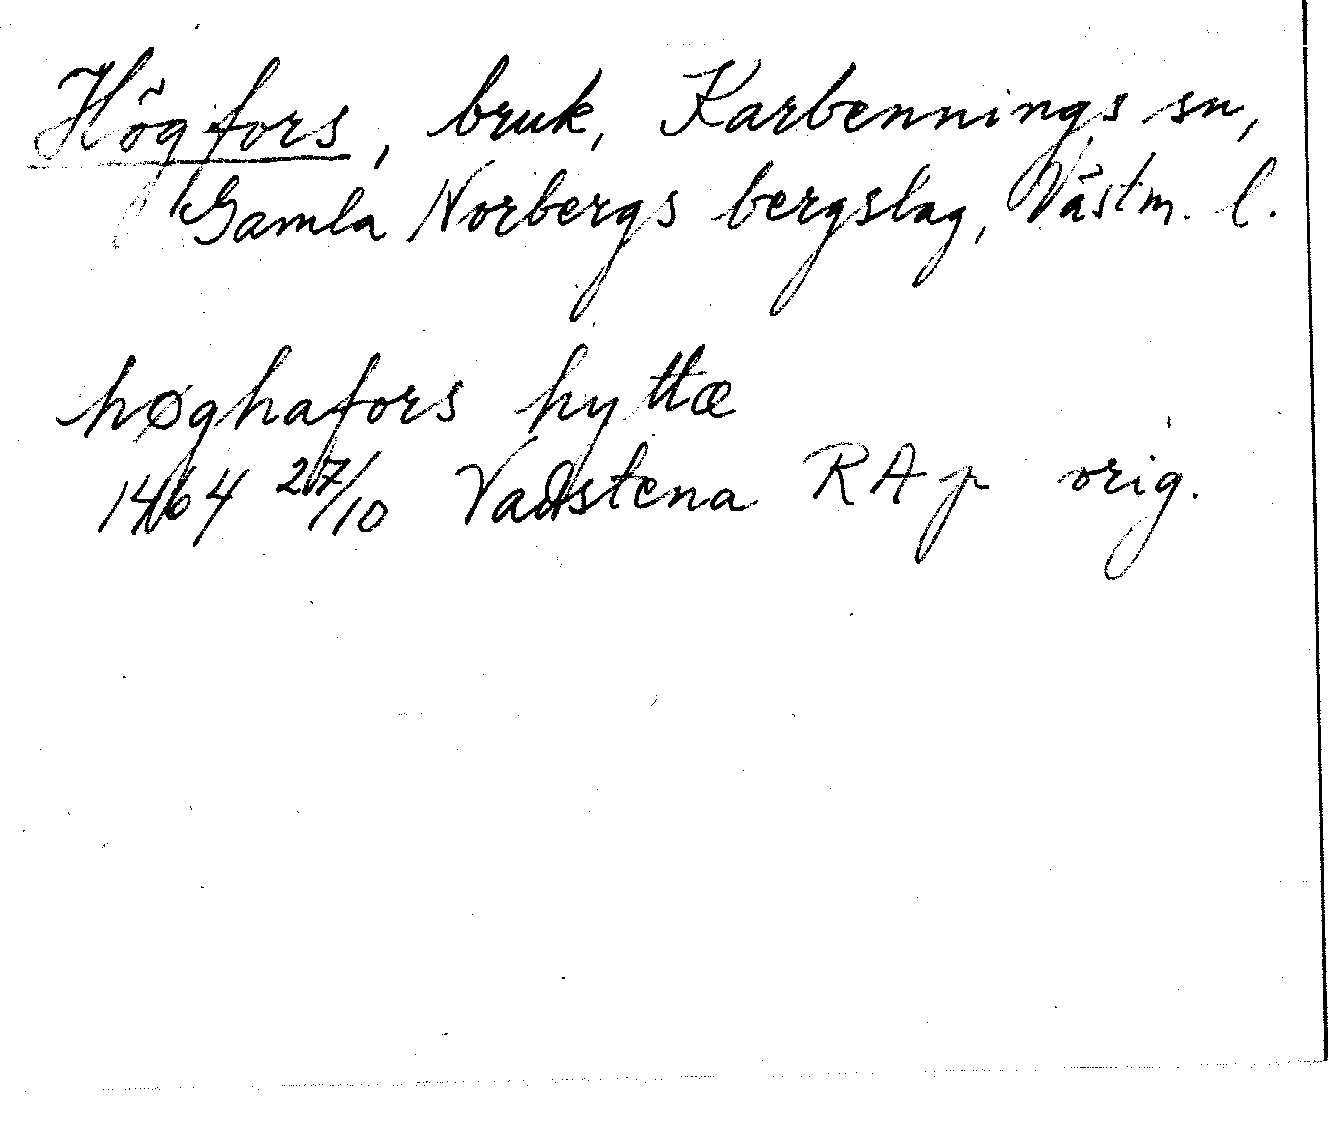 Högfors, bruk, Karbennings sn,
Gamla Norbergs bergslag, Västm. l.
høghafors hyttæ
1464 27/10 Vadstena RAp orig.